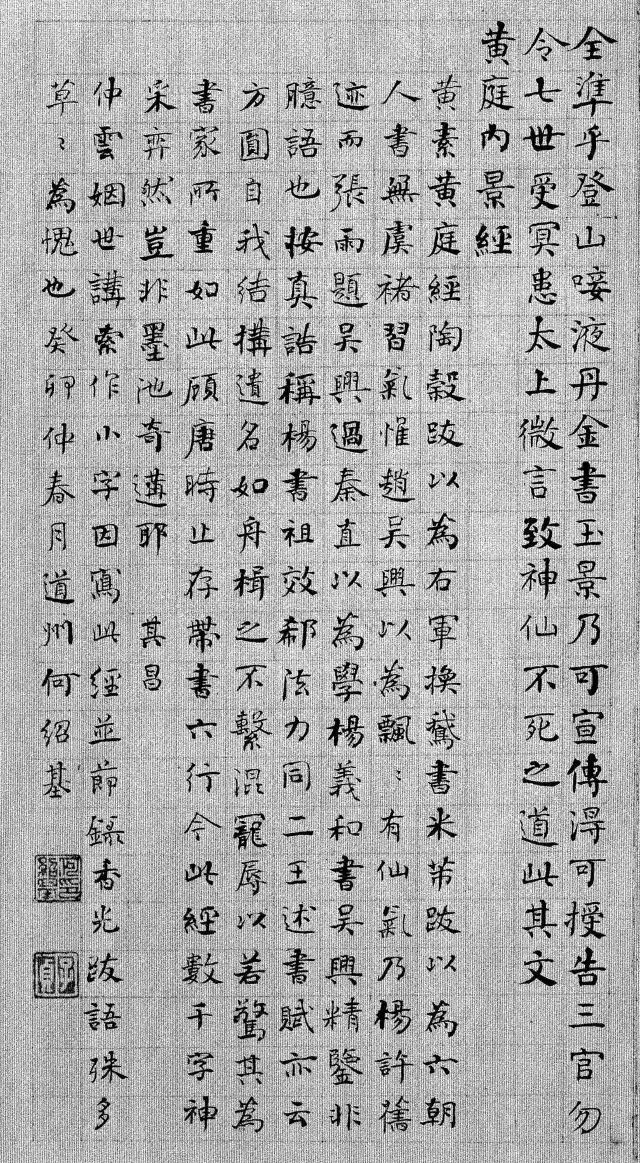 全準乎登山唼液丹金書玉景乃可宣傳淂可授告三官勿
令七世受冥患太上微言致神仙不死之道此其文
黄庭内景經
黄素黄庭經陶穀跋以為右軍換鵞書米芾跋以為六朝
人書無虞褚習氣惟趙吳興以為飄〻有仙氣乃楊許舊
迹而張雨題吳興過秦直以為學楊義和書吳興精鑒非
臆語也按真誥稱楊書祖效郗法力同二王述書賦亦云
方圓自我結構遺名如舟楫之不繫混寵辱以若驚其為
書家所重如此顧唐時止存帶書六行今此經數千字神
采弈然豈非墨池奇遘耶 其昌
仲雲姻世講索作小字因寫此經並節錄香光跋語殊多
草〻為愧也癸卯仲春月道州何紹基
何紹基印
子貞